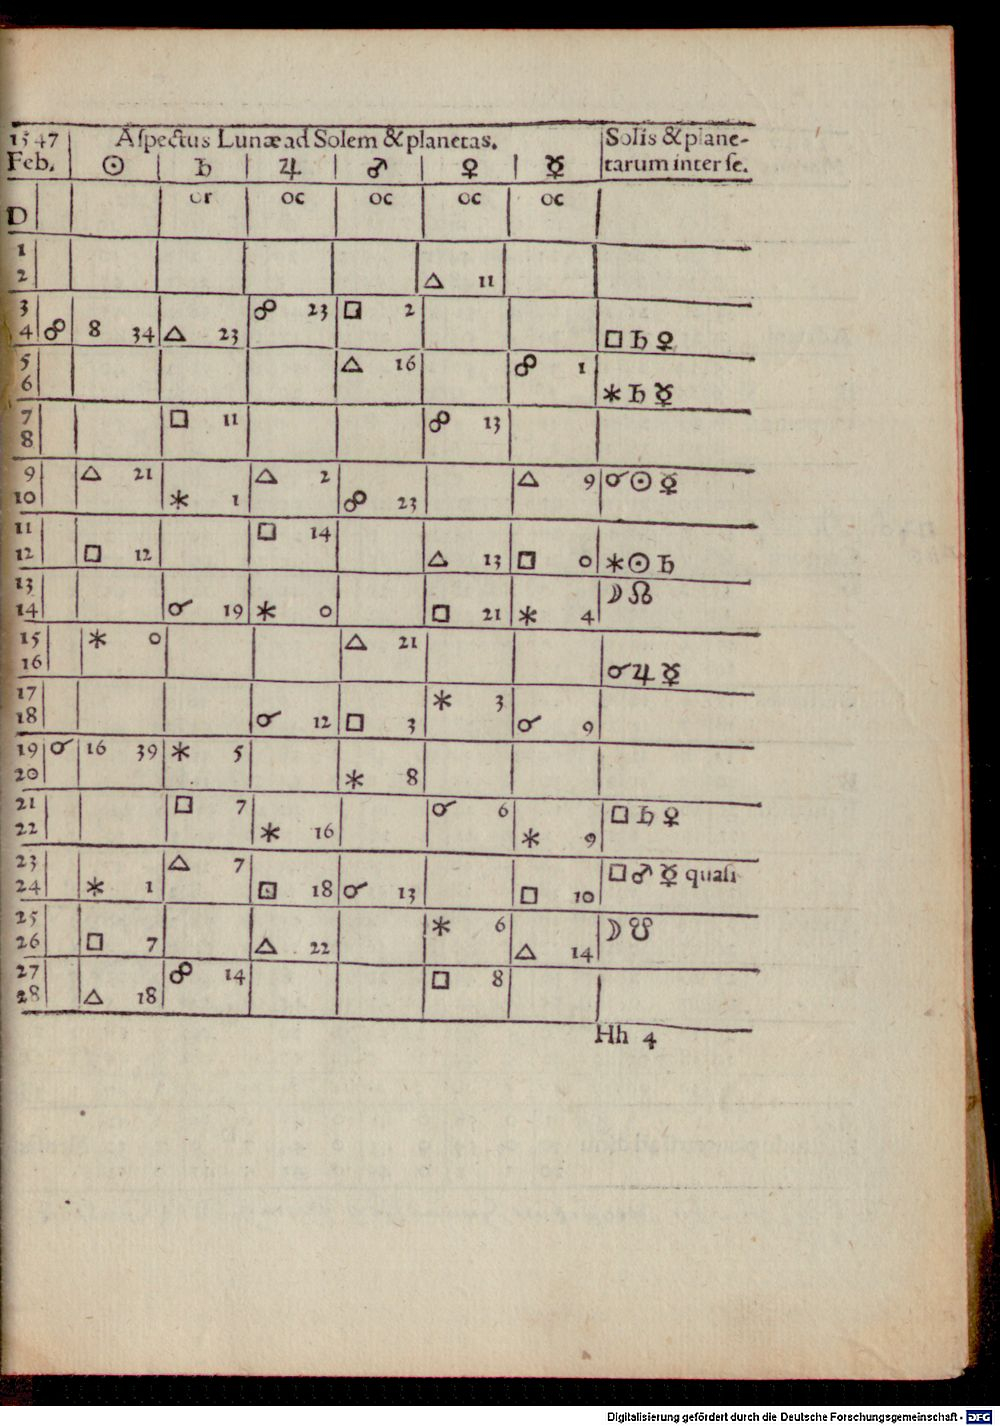 1547 Aſpectus Lunæ ad Solem & planetas. Solis & plane-
Feb. ☉ ♄ ♃ ♂ ♀ ☿ tarum inter ſe.
D or oc oc oc oc
1
2 △ 11
3 ☍ 23 □ 2
4 ☍ 8 34 △ 23 □ ♄ ♀
5 △ 16 ☍ 1
6 ⚹ ♄ ☿
7 □ 11 ☍ 13
8
9 △ 21 △ 2 △ 9 ☌ ☉ ☿
10 ⚹ 1 ☍ 23
11 □ 14
12 □ 12 △ 13 □ 0 ⚹ ☉ ♄
13 ☽ ☊
14 ☌ 19 ⚹ 0 □ 21 ⚹ 4
15 ⚹ 0 △ 21
16 ☌ ♃ ☿
17 ⚹ 3
18 ☌ 12 □ 3 ☌ 9
19 ☌ 16 39 ⚹ 5
20 ⚹ 8
21 □ 7 ☌ 6 □ ♄ ♀
22 ⚹ 16 ⚹ 9
23 △ 7 □ ♂ ☿ quaſi
24 ⚹ 1 □ 18 ☌ 13 □ 10
25 ⚹ 6 ☽ ☋
26 □ 7 △ 22 △ 14
27 ☍ 14 □ 8
28 △ 18
Hh 4
Digitalisierung gefördert durch die Deutsche Forschungsgemeinschaft - DFG